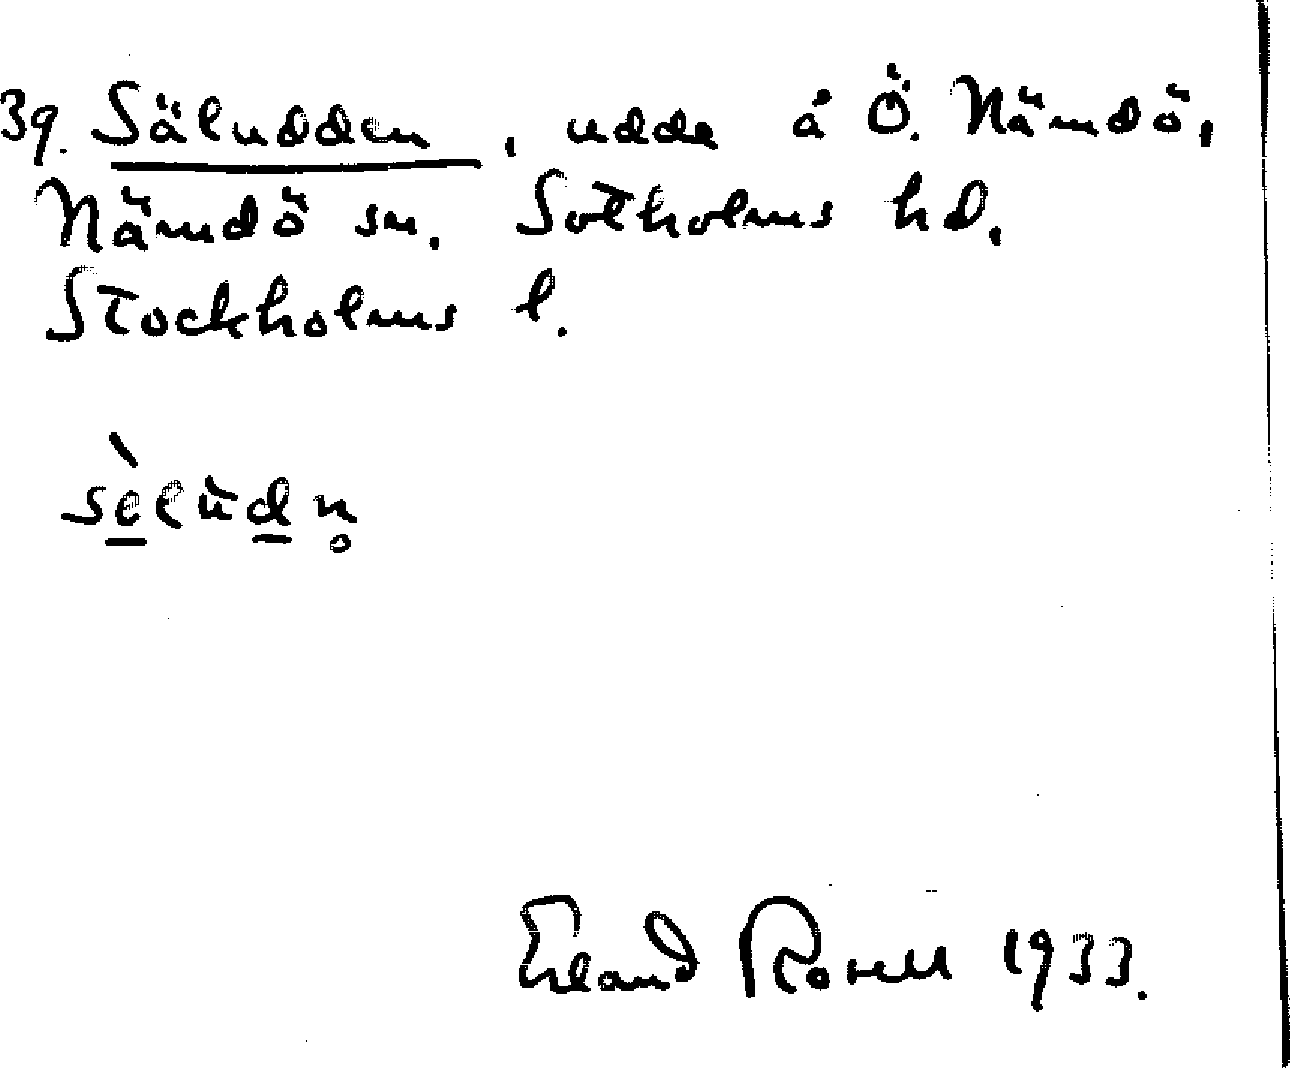 39. Säludden, udde å Ö. Nämdö,
Nämdö sn. Sotholms hd.
Stockholms l.
sè̠lùd̠n̥
Erland Rosell 1933.